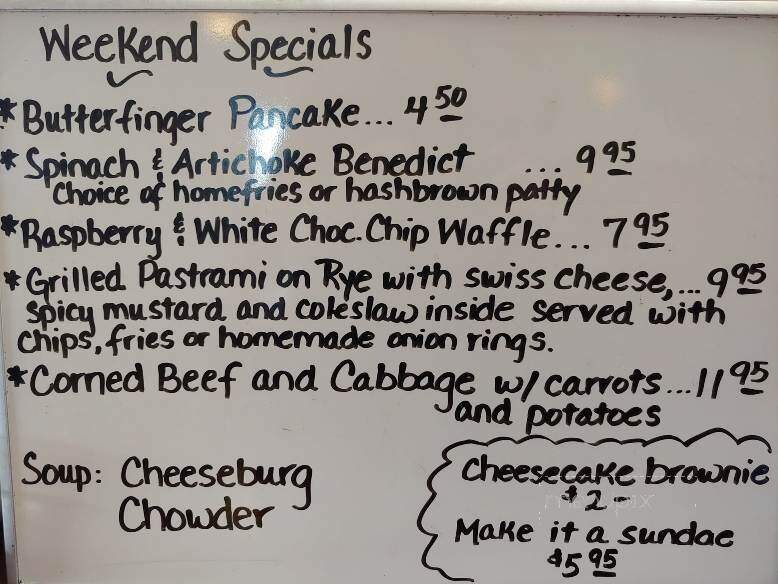 Weekend Specials
*Butterfinger Pancake... 4 50
*Spinach & Artichoke Benedict ... 9 95
choice of homefries or hashbrown patty
*Raspberry & White Choc. Chip Waffle... 7 95
*Grilled Pastrami on Rye with swiss cheese,... 9 95
spicy mustard and coleslaw inside served with
chips, fries or homemade onion rings.
*Corned Beef and Cabbage w/ carrots... 11 95
and potatoes
Soup: Cheeseburg
Chowder
Cheesecake brownie
$2-
Make it a sundae
$5 95